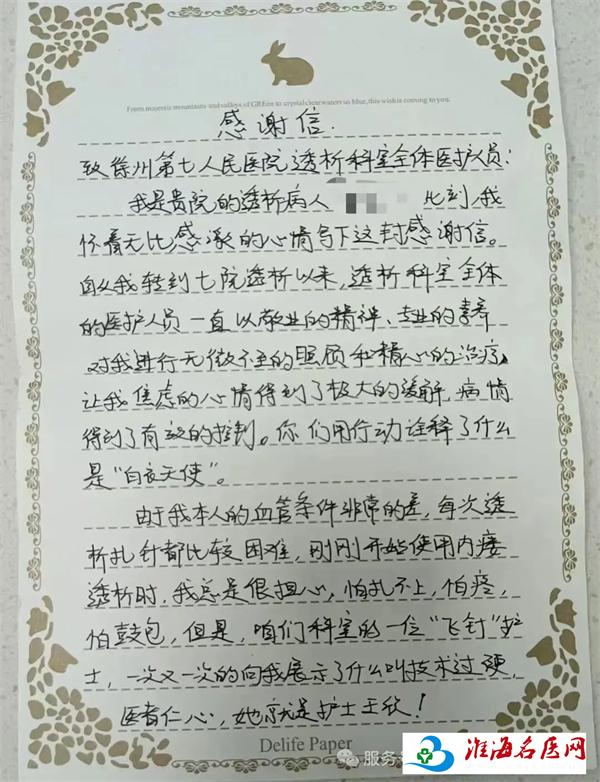 From majestic mountains and valleys of GREen to crystal clear waters so blue, this wish is coming to you.
感谢信.
致徐州第七人民医院透析科室全体医护人员:
我是贵院的透析病人 此刻,我
怀着无比感激的心情写下这封感谢信。
自从我转到七院透析以来,透析科室全体
的医护人员一直以敬业的精神、专业的素养
对我进行无微不至的照顾和精心的治疗,
让我焦虑的心情得到了极大的缓解,病情
得到了有效的控制。你们用行动诠释了什么
是“白衣天使”。
由于我本人的血管条件非常的差,每次透
析扎针都比较困难,刚刚开始使用内瘘
透析时,我总是很担心,怕扎不上,怕疼,
怕鼓包,但是,咱们科室的一位“飞针”护
士,一次又一次的向我展示了什么叫技术过硬,
医者仁心,她就是护士王欣!
Delife Paper
服务
淮海名医网